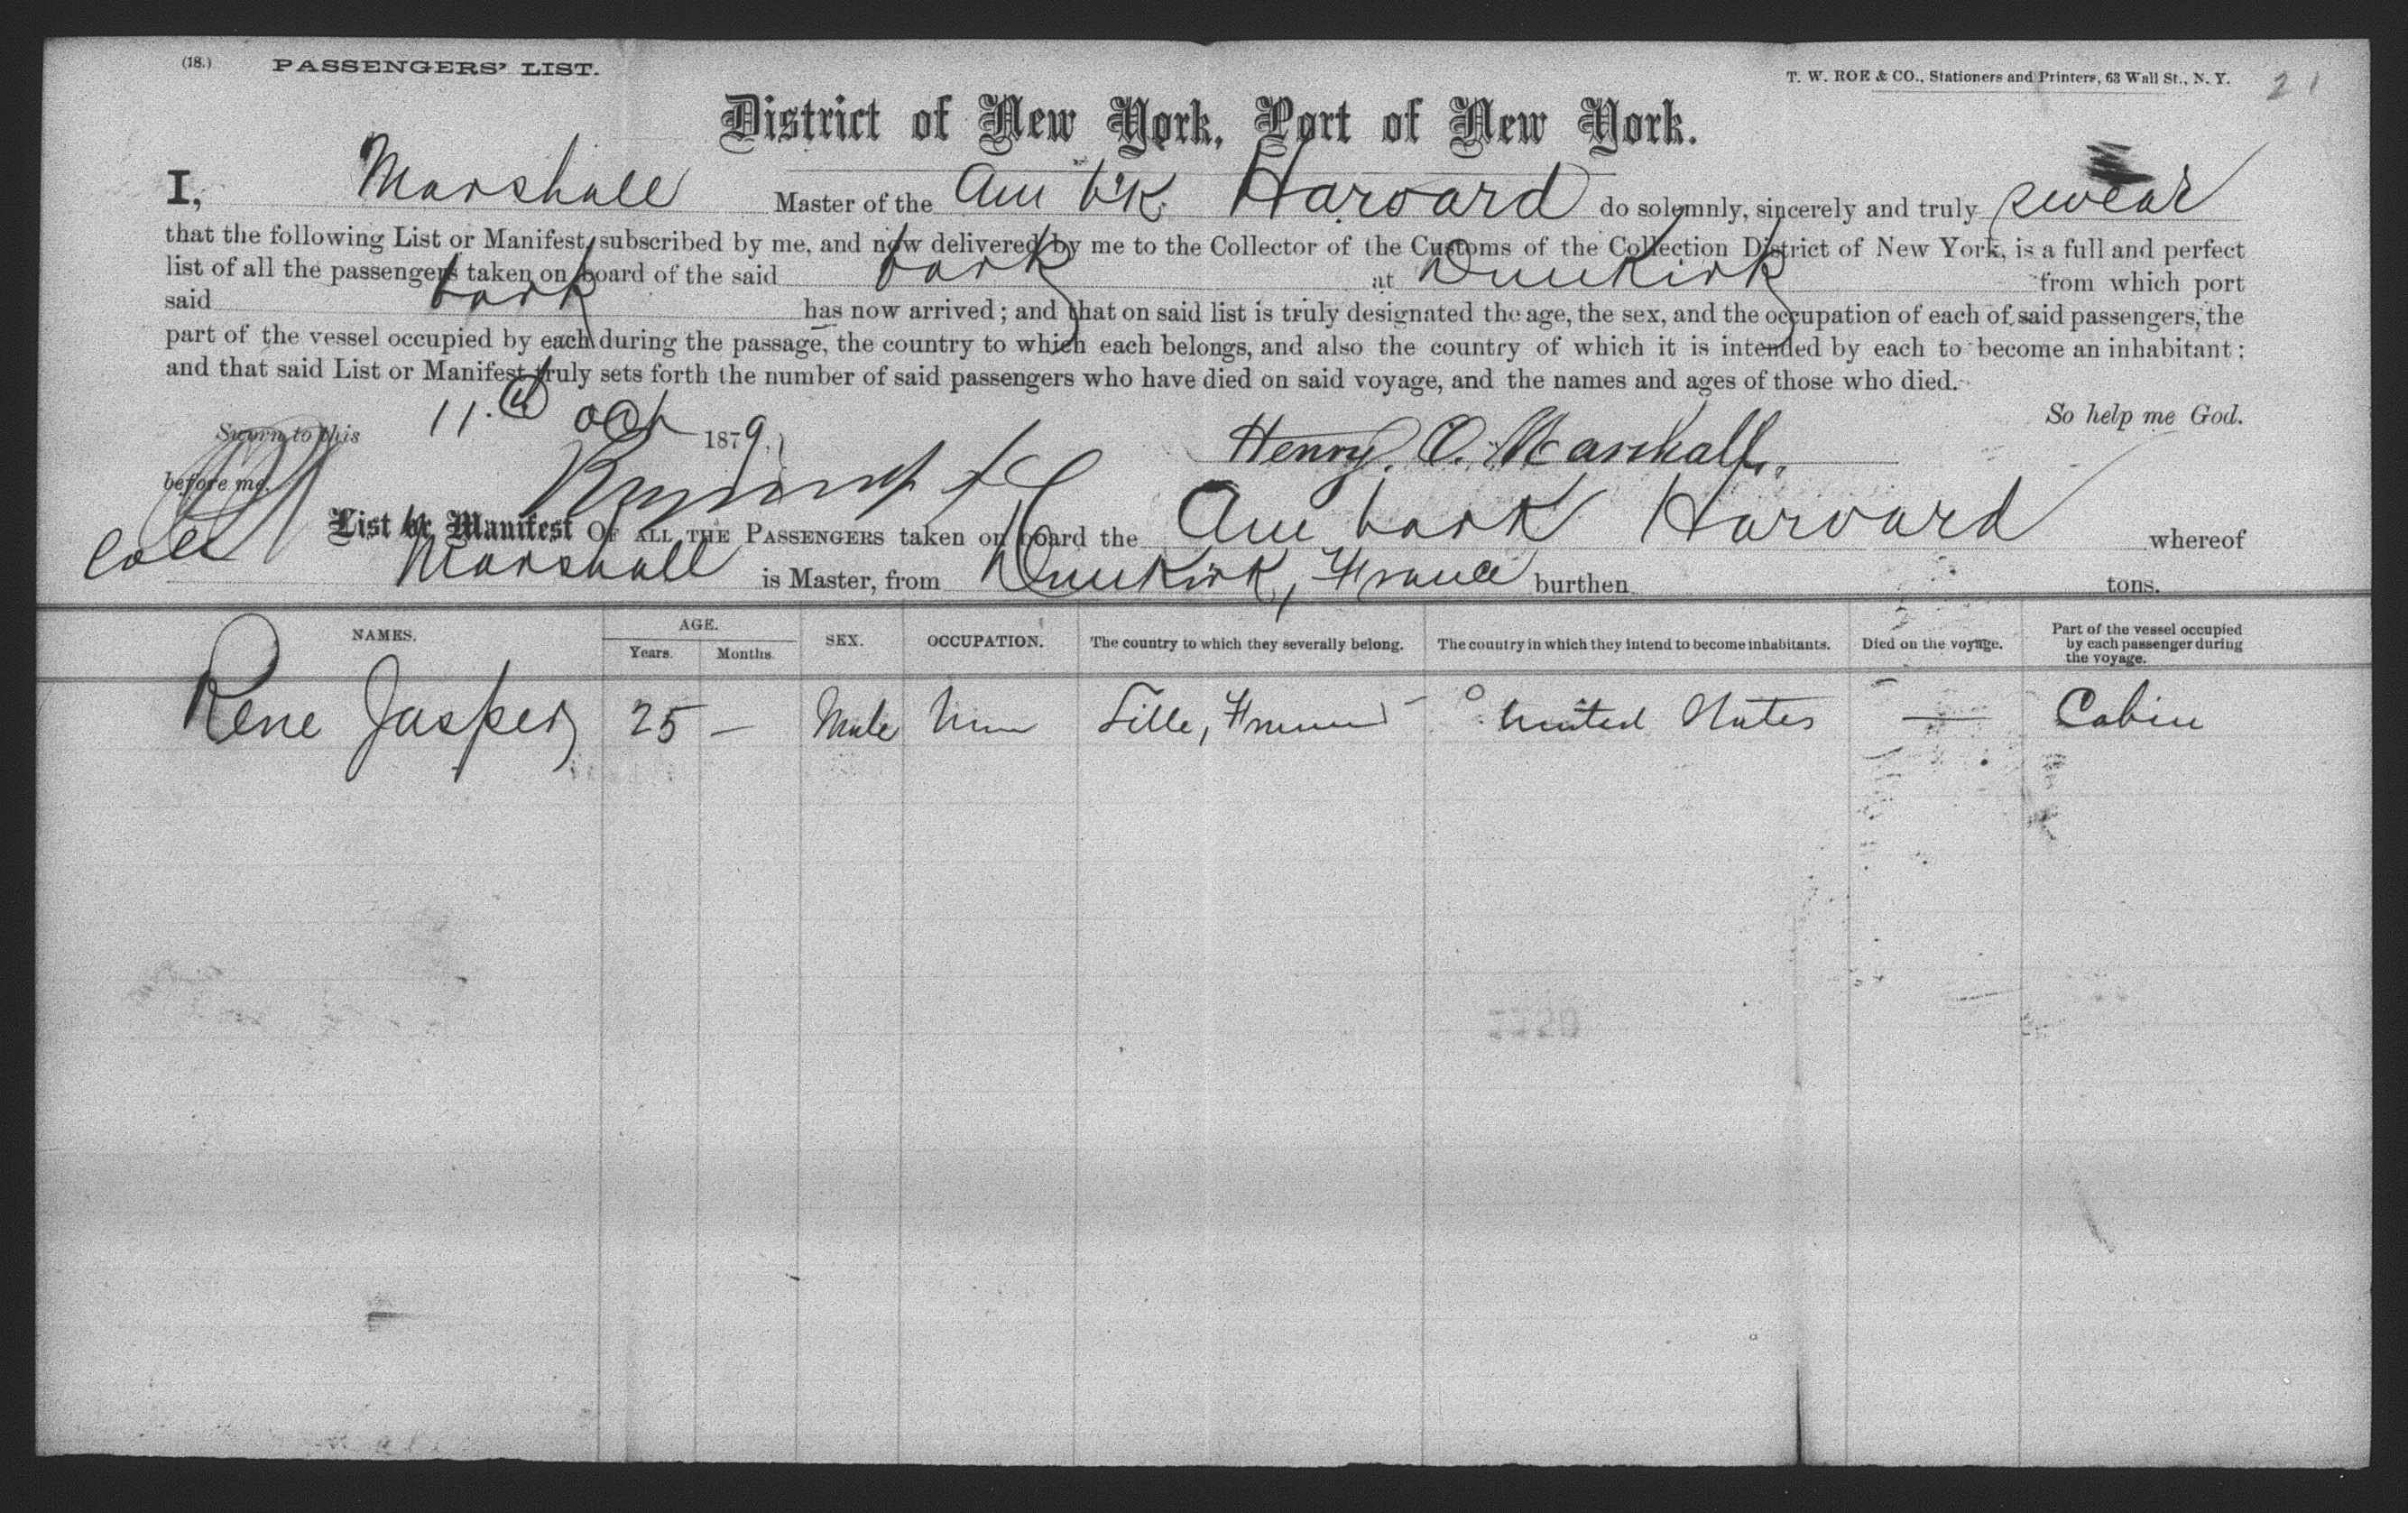 (18.) PASSENGERS' LIST. T. W. ROE & CO., Stationers and Printers, 63 Wall St., N. Y. 21
District of New York, Port of New York.
I, Marshall Master of the Am b'k Harvard do solemnly, sincerely and truly swear
that the following List or Manifest, subscribed by me, and now delivered by me to the Collector of the Customs of the Collection District of New York, is a full and perfect
list of all the passengers taken on board of the said bark at Dunkirk from which port
said bark has now arrived; and that on said list is truly designated the age, the sex, and the occupation of each of said passengers, the
part of the vessel occupied by each during the passage, the country to which each belongs, and also the country of which it is intended by each to become an inhabitant;
and that said List or Manifest truly sets forth the number of said passengers who have died on said voyage, and the names and ages of those who died.
So help me God.
Sworn to this 11.th Oct 1879. Henry. O. Marshall.
before me,
List or Manifest OF ALL THE PASSENGERS taken on board the Am bark Harvard whereof
Marshall is Master, from Dunkirk, France burthen tons.
NAMES. AGE. Years. Months. SEX. OCCUPATION. The country to which they severally belong. The country in which they intend to become inhabitants. Died on the voyage. Part of the vessel occupied by each passenger during the voyage.
Rene Jasper 25 — Male Lille, France United States — Cabin